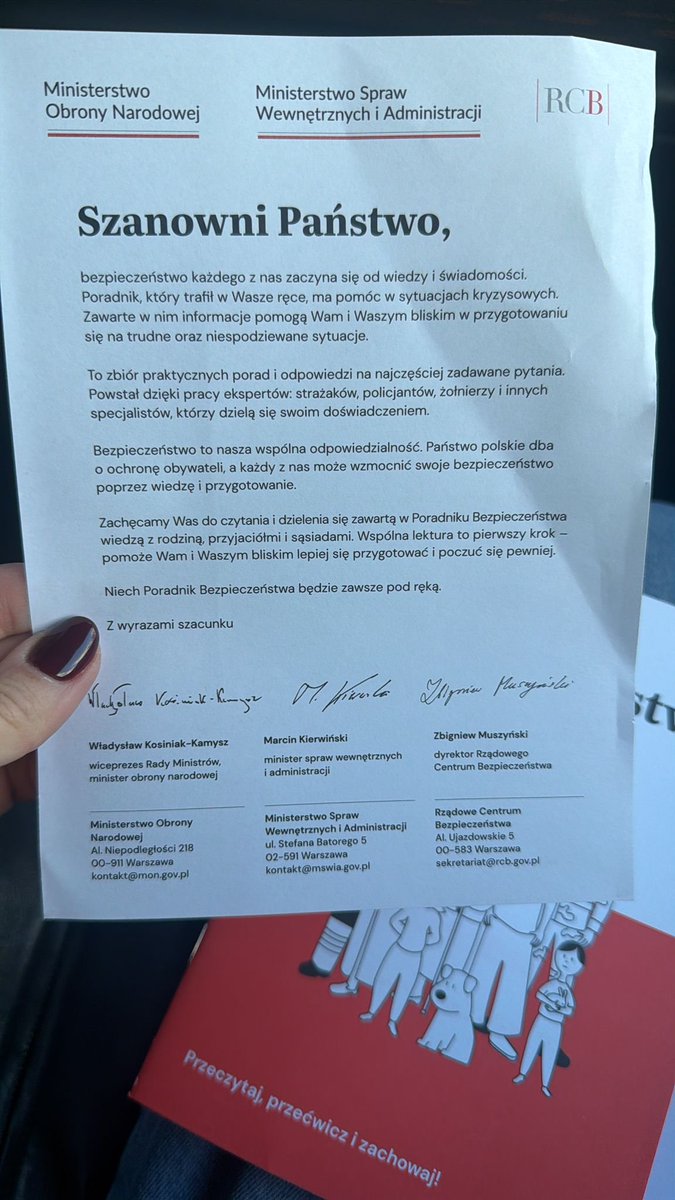 Ministerstwo
Obrony Narodowej
Ministerstwo Spraw
Wewnętrznych i Administracji
RCB
Szanowni Państwo,
bezpieczeństwo każdego z nas zaczyna się od wiedzy i świadomości.
Poradnik, który trafił w Wasze ręce, ma pomóc w sytuacjach kryzysowych.
Zawarte w nim informacje pomogą Wam i Waszym bliskim w przygotowaniu
się na trudne oraz niespodziewane sytuacje.
To zbiór praktycznych porad i odpowiedzi na najczęściej zadawane pytania.
Powstał dzięki pracy ekspertów: strażaków, policjantów, żołnierzy i innych
specjalistów, którzy dzielą się swoim doświadczeniem.
Bezpieczeństwo to nasza wspólna odpowiedzialność. Państwo polskie dba
o ochronę obywateli, a każdy z nas może wzmocnić swoje bezpieczeństwo
poprzez wiedzę i przygotowanie.
Zachęcamy Was do czytania i dzielenia się zawartą w Poradniku Bezpieczeństwa
wiedzą z rodziną, przyjaciółmi i sąsiadami. Wspólna lektura to pierwszy krok –
pomoże Wam i Waszym bliskim lepiej się przygotować i poczuć się pewniej.
Niech Poradnik Bezpieczeństwa będzie zawsze pod ręką.
Z wyrazami szacunku
Władysław Kosiniak-Kamysz
M. Kierwiński
Zbigniew Muszyński
Władysław Kosiniak-Kamysz
wiceprezes Rady Ministrów,
minister obrony narodowej
Marcin Kierwiński
minister spraw wewnętrznych
i administracji
Zbigniew Muszyński
dyrektor Rządowego
Centrum Bezpieczeństwa
Ministerstwo Obrony
Narodowej
Al. Niepodległości 218
00-911 Warszawa
kontakt@mon.gov.pl
Ministerstwo Spraw
Wewnętrznych i Administracji
ul. Stefana Batorego 5
02-591 Warszawa
kontakt@mswia.gov.pl
Rządowe Centrum
Bezpieczeństwa
Al. Ujazdowskie 5
00-583 Warszawa
sekretariat@rcb.gov.pl
Przeczytaj, przećwicz i zachowaj!